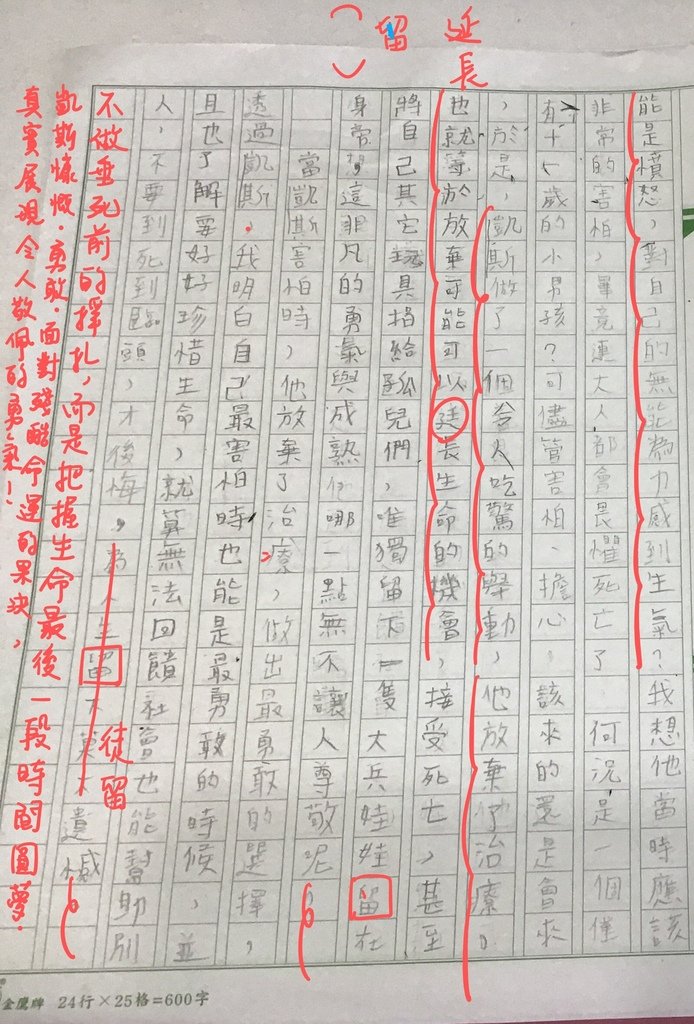 能是憤怒，對自己的無能為力感到生氣？我想他當時應該
非常的害怕，畢竟連大人都會畏懼死亡了，何況是一個僅
有十七歲的小男孩？可儘管害怕、擔心，該來的還是會來
，於是，凱斯做了一個令人吃驚的舉動，他放棄了治療。
也就等於放棄可能可以廷長生命的機會，接受死亡，甚至
將自己其它玩具捐給孤兒們，唯獨留下一隻大兵娃娃留在
身旁，這非凡的勇氣與成熟，哪一點無不讓人尊敬呢，
當凱斯害怕時，他放棄了治療，做出最勇敢的選擇，
透過凱斯，我明白自己最害怕時，也能是最勇敢的時候，並
且也了解要好好珍惜生命，就算無法回饋社會也能幫助別
人，不要到死到臨頭，才後悔，為人生留下莫大遺憾。
延長
留
徒留
不做垂死前的掙扎，而是把握生命最後一段時間圓夢。
凱斯慷慨、勇敢，面對殘酷命運的果決，
真實展現令人敬佩的勇氣！
金鷹牌 24行×25格=600字